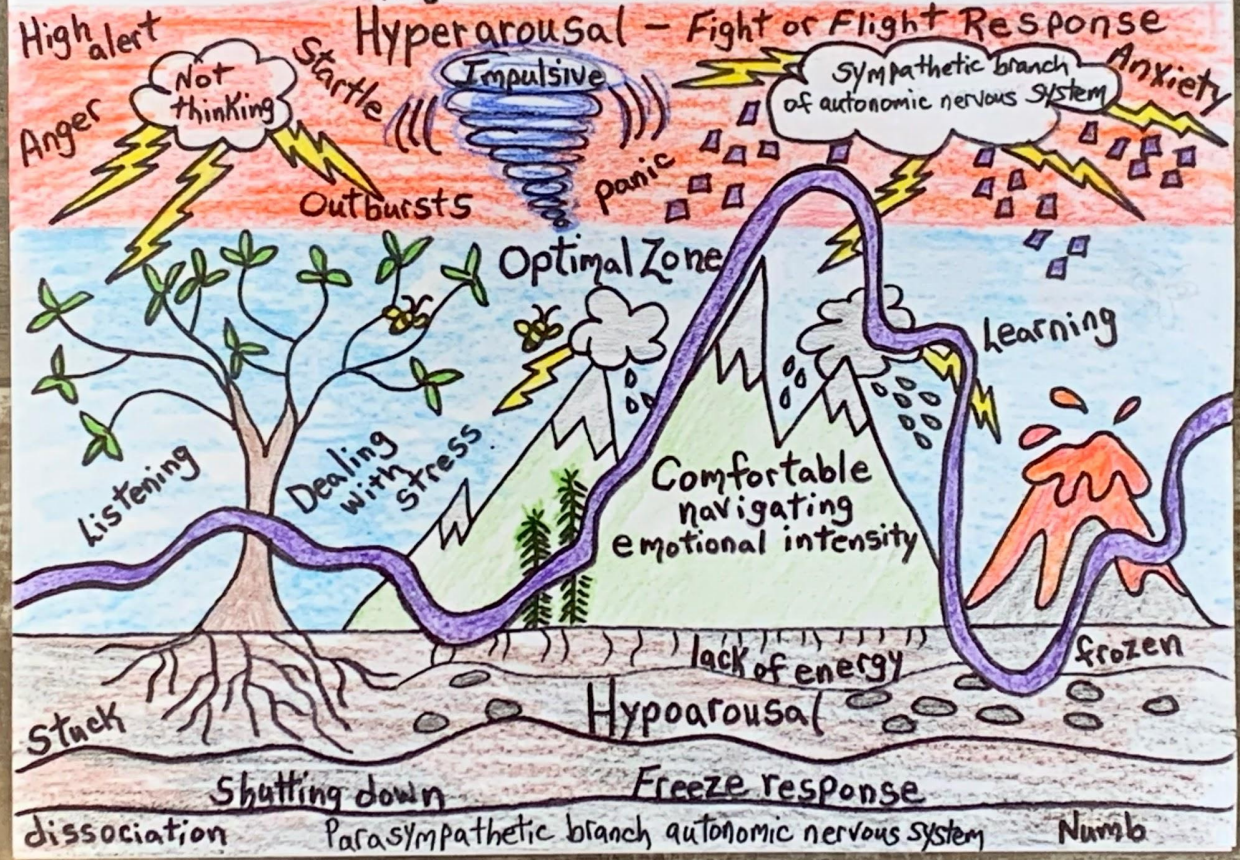 Hyperarousal - Fight or Flight Response
High alert
Not
thinking
Startle
Impulsive
Sympathetic branch
of autonomic nervous system
Anxiety
Anger
Outbursts
panic
Optimal Zone
Learning
Listening
Dealing
with
stress
Comfortable
navigating
emotional intensity
lack of energy
frozen
Stuck
Hypoarousal
Shutting down
Freeze response
dissociation
Parasympathetic branch autonomic nervous system
Numb